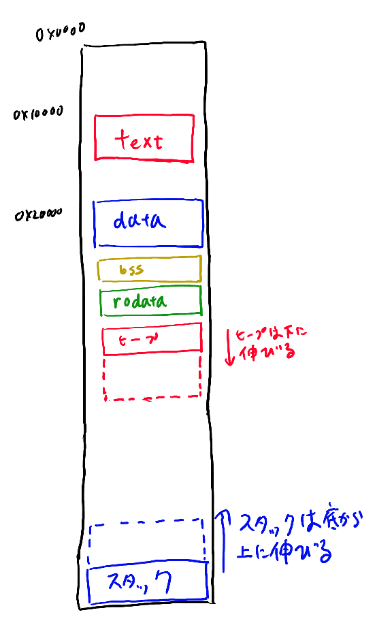 0x0000
0x10000
text
0x20000
data
bss
rodata
ヒープ
ヒープは下に
伸びる
スタックは底から
上に伸びる
スタック